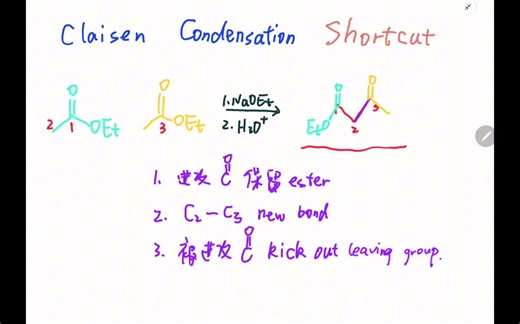 Claisen Condensation Shortcut
O O 1. NaOEt O O
2 1 OEt 3 OEt 2. H₃O⁺ EtO 1 2 3
O
1. 进攻 C 保留 ester
2. C₂—C₃ new bond
O
3. 被进攻 C kick out leaving group.